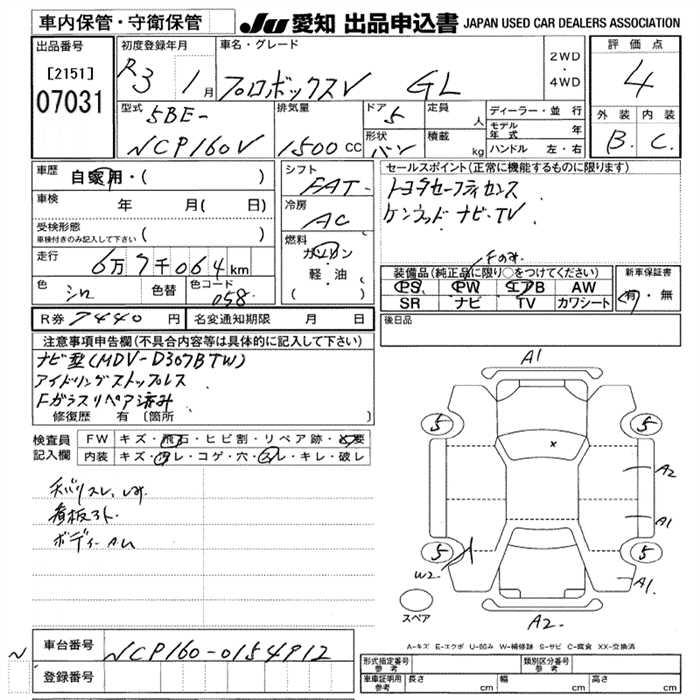 車内保管・守衛保管
JU 愛知 出品申込書 JAPAN USED CAR DEALERS ASSOCIATION
出品番号
[2151]
07031
初度登録年月
R3 1月
車名・グレード
プロボックスV GL
2WD・4WD
評価点
4
外装 内装
B. C.
型式
5BE-
NCP160V
排気量
1500 CC
ドア 5
形状 バン
定員 人
積載 kg
ディーラー・並行
モデル年式 年
ハンドル 左・右
車歴
自家用・( )
車検 年 月( 日)
受検形態
車検付きのみ記入して下さい ( )
走行
6万7千064km
色 シロ 色替 色コード 058
シフト
FAT-
冷房
AC
燃料
ガソリン
軽・油
( )
セールスポイント(正常に機能するものに限ります)
トヨタセーフティセンス
ケンウッド ナビ・TV
Fのみ
装備品(純正品に限り○をつけてください)
PS PW エアB AW
SR ナビ TV カワシート
新車保証書
有・無
R券 7440 円 名変通知期限 月 日
後日品
注意事項申告欄(不具合内容等は具体的に記入して下さい)
ナビ型(MDV-D307BTW)
アイドリングストップレス
Fガラスリペア済み
修復歴 有 〔箇所 〕
検査員記入欄
FW キズ・飛石・ヒビ割・リペア跡・交要
内装 キズ・汚レ・コゲ・穴・スレ・キレ・破レ
看板跡
ボディー AU
A1
5 5
A2
A1
5 5
W2
A1
スペア
A2
A-キズ E-エクボ U-凹み W-補修跡 S-サビ C-腐食 XX-交換済
車台番号 NCP160-0154912
登録番号
形式指定番号 参考 類別区分番号 参考
車庫証明用 参考 長さ cm 幅 cm 高さ cm